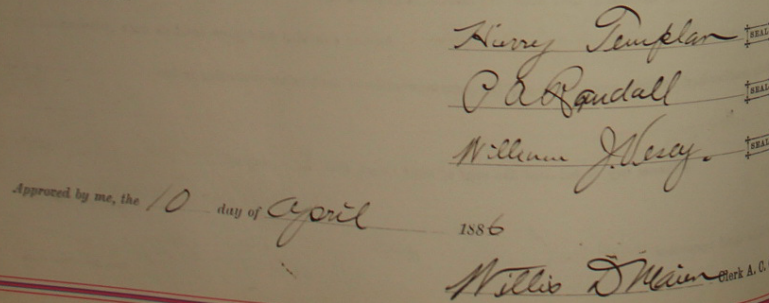 Harry Templar SEAL
P A Randall SEAL
William J. Vesey. SEAL
Approved by me, the 10 day of April 1886
Willis D Maier Clerk A. C.